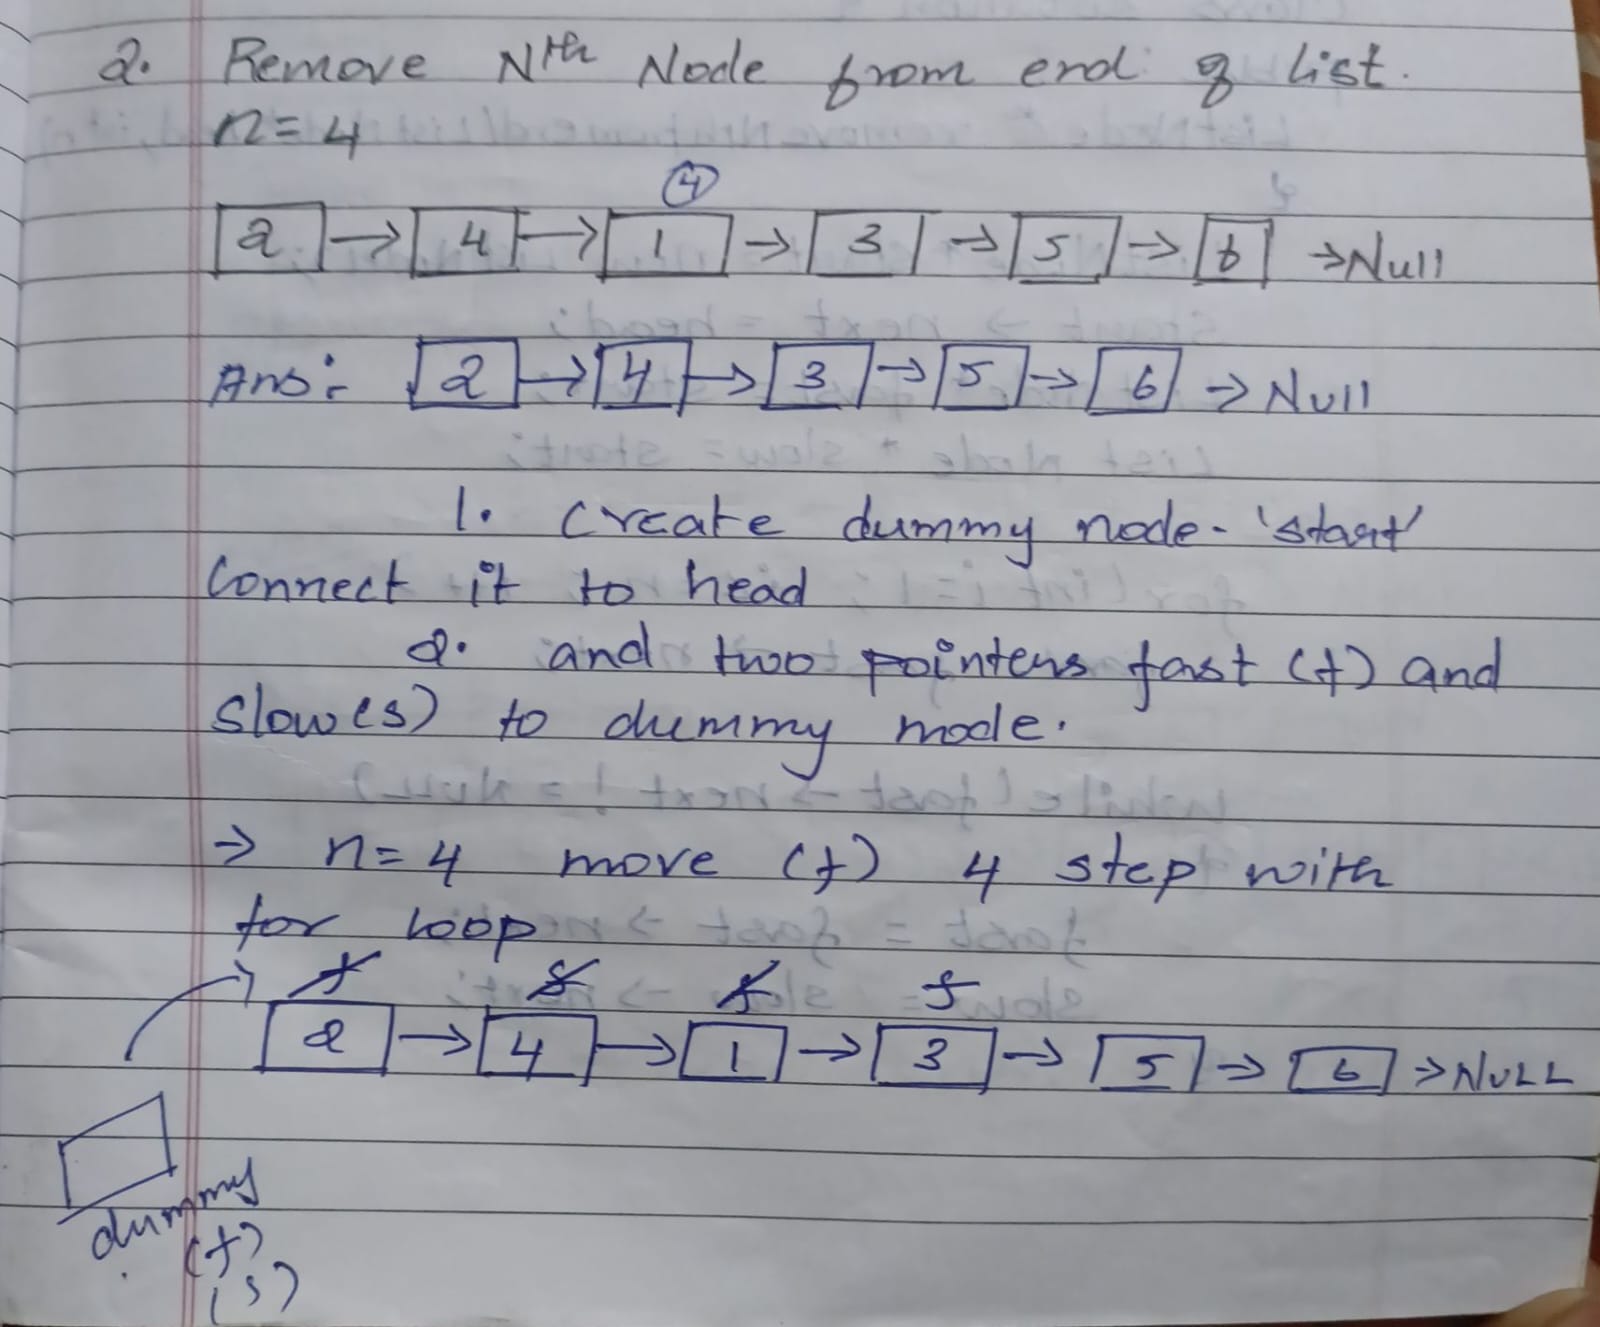 2. Remove Nth Node from end of list.
n=4
4
2 → 4 → 1 → 3 → 5 → 6 → Null
Ans:- 2 → 4 → 3 → 5 → 6 → Null
1. Create dummy node - 'start'
Connect it to head
2. and two pointers fast (f) and
slow(s) to dummy node.
→ n=4 move (f) 4 step with
for loop
f f f f
2 → 4 → 1 → 3 → 5 → 6 → NULL
dummy
(f)
(s)